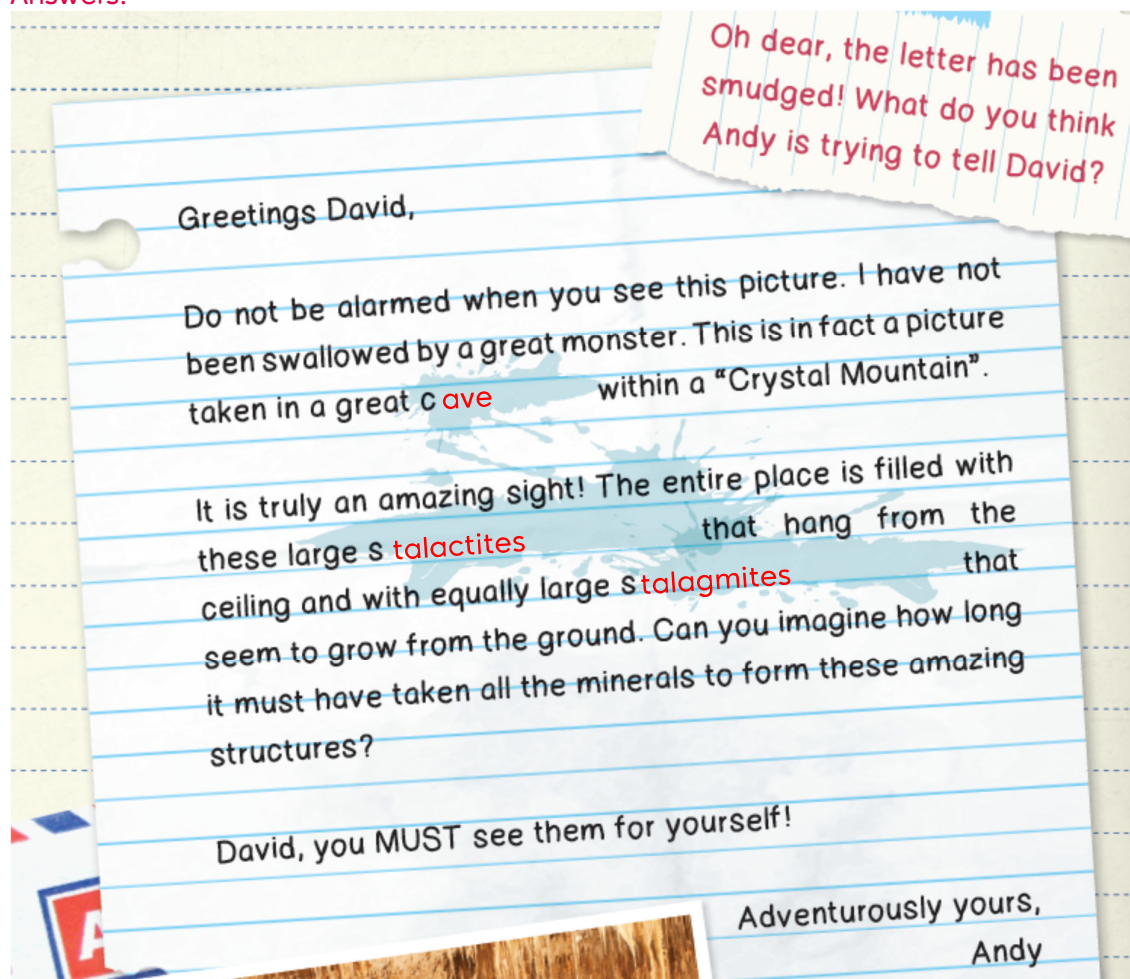 Answers:
Oh dear, the letter has been
smudged! What do you think
Andy is trying to tell David?
Greetings David,
Do not be alarmed when you see this picture. I have not
been swallowed by a great monster. This is in fact a picture
taken in a great c ave within a “Crystal Mountain”.
It is truly an amazing sight! The entire place is filled with
these large s talactites that hang from the
ceiling and with equally large s talagmites that
seem to grow from the ground. Can you imagine how long
it must have taken all the minerals to form these amazing
structures?
David, you MUST see them for yourself!
Adventurously yours,
Andy